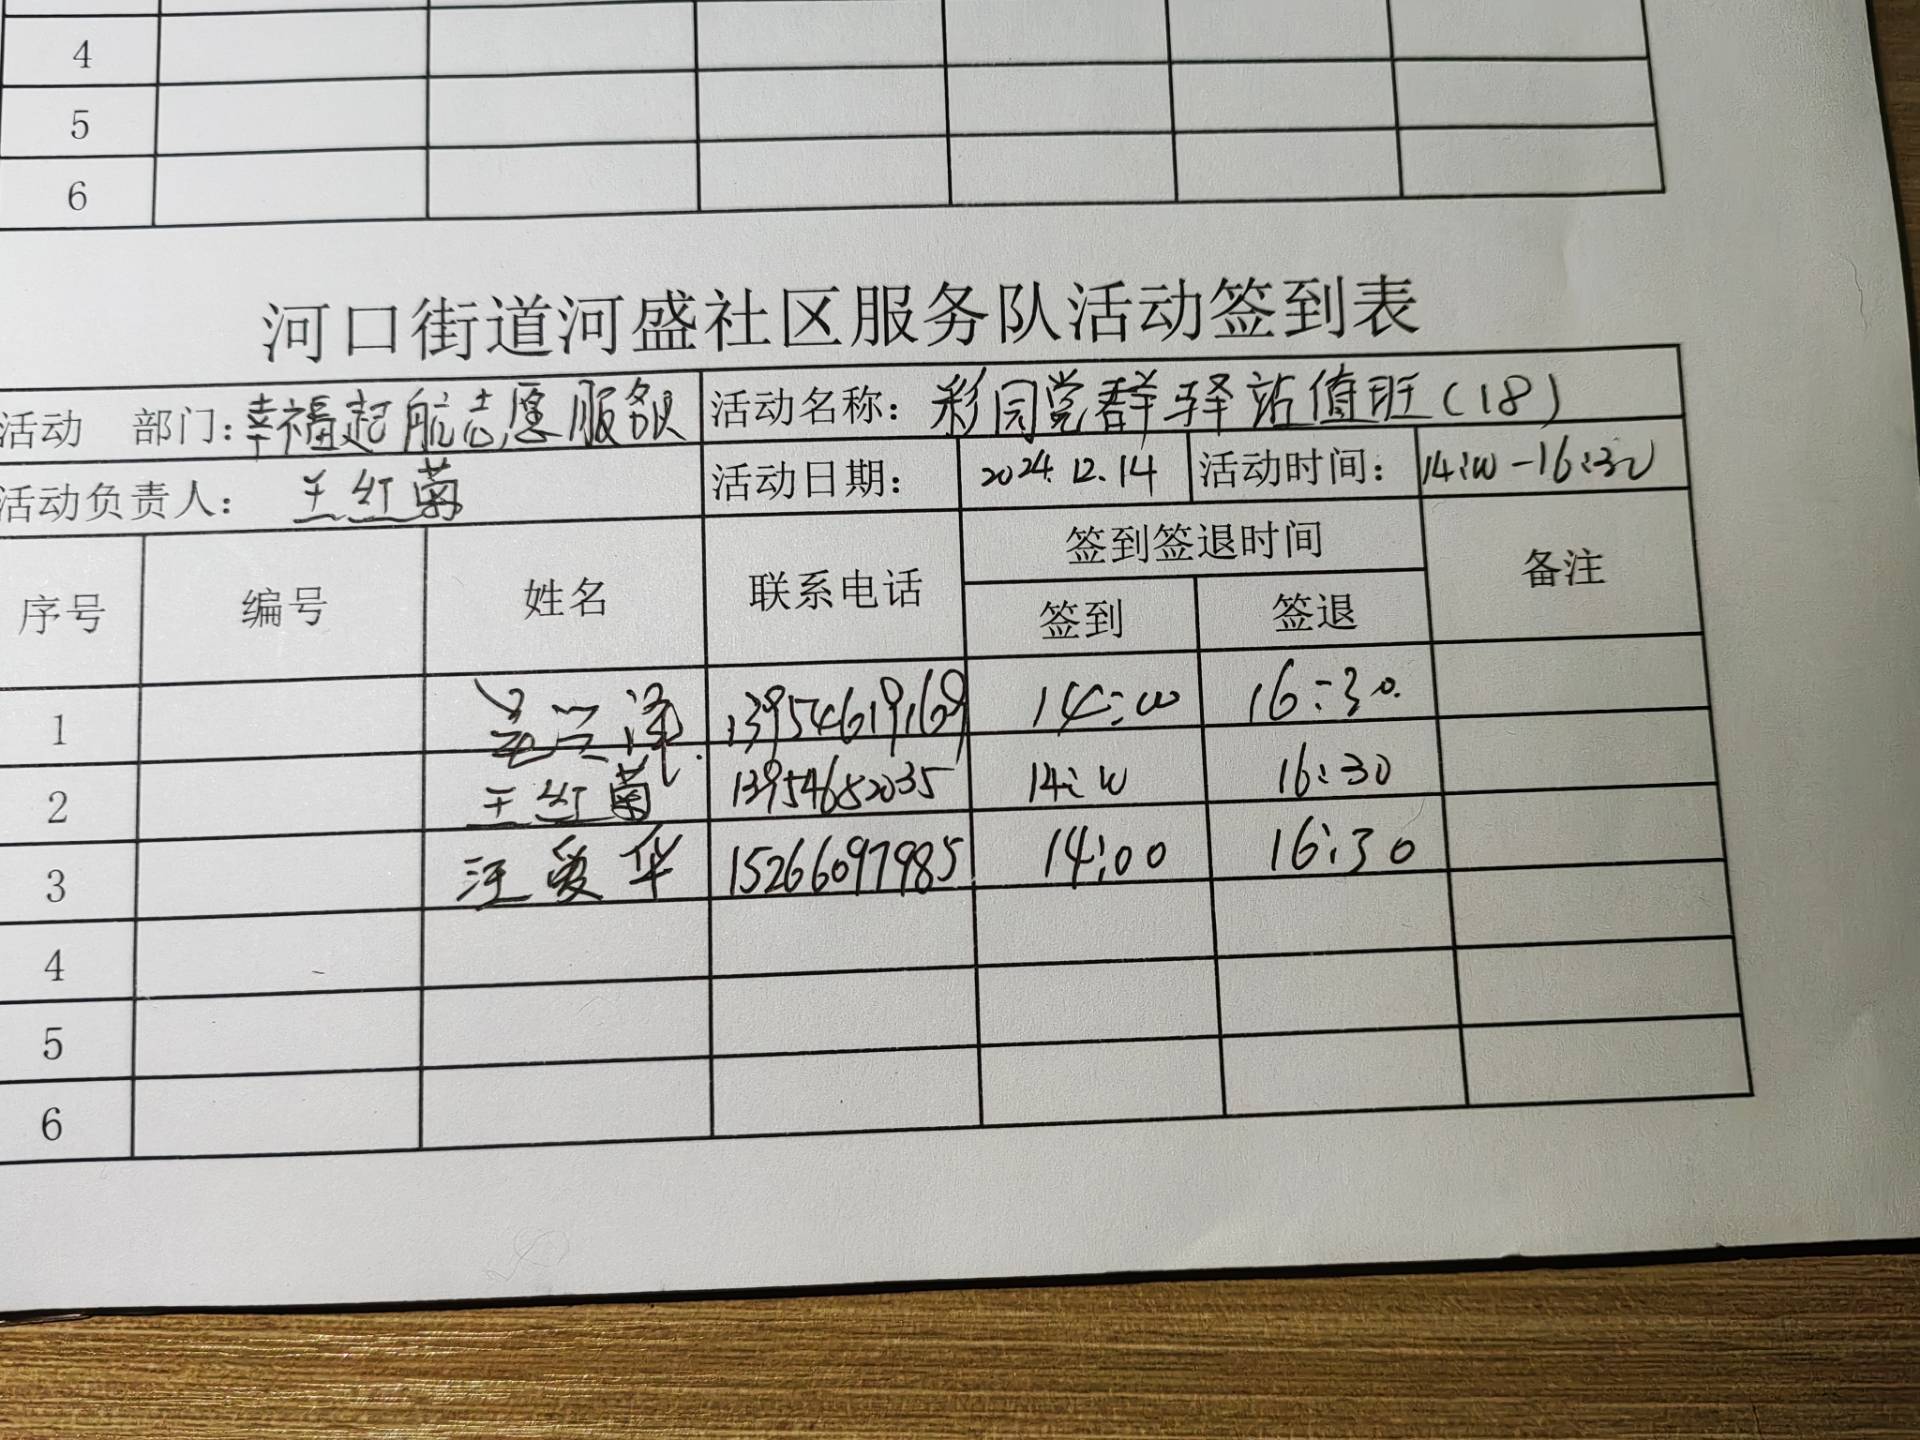 4
5
6
河口街道河盛社区服务队活动签到表
活动 部门：幸福起航志愿服务队 活动名称：彩园党群驿站值班（18）
活动负责人： 王红菊 活动日期： 2024.12.14 活动时间： 14:00-16:30
序号 编号 姓名 联系电话 签到签退时间 备注
签到 签退
1 13954619169 14:00 16:30
2 王红菊 13954682035 14:00 16:30
3 汪爱华 15266097985 14:00 16:30
4
5
6